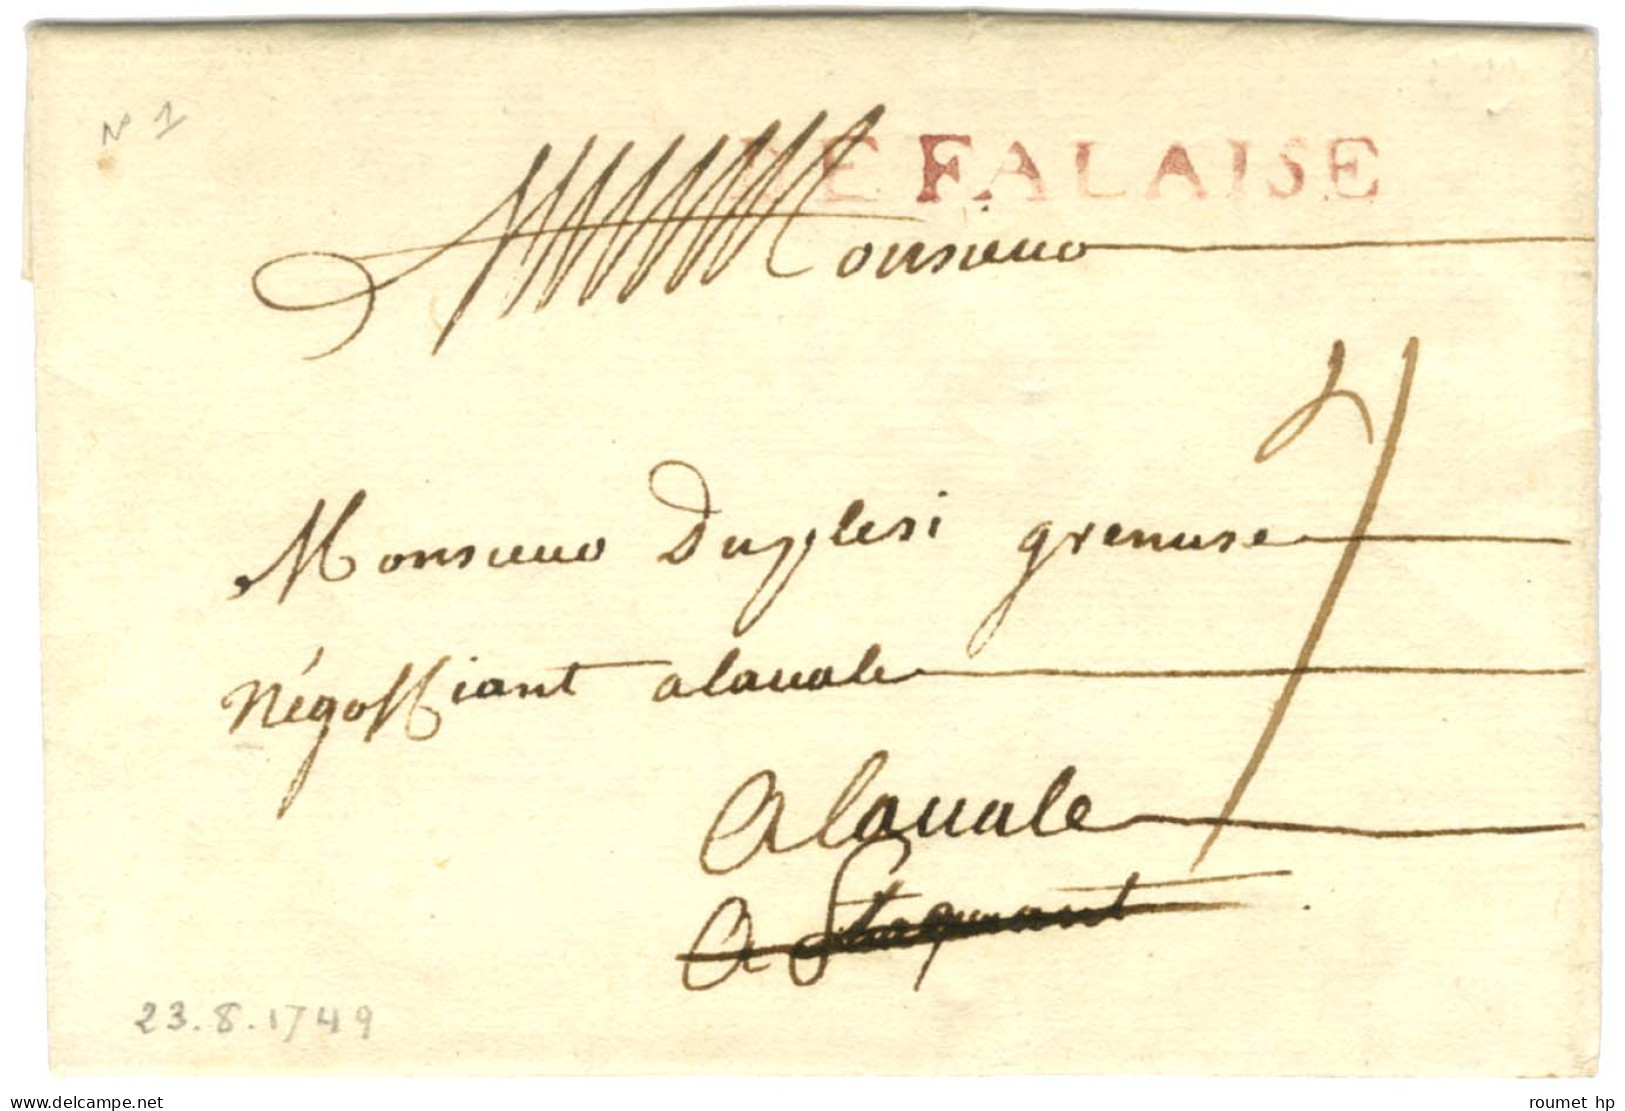 No 1
DE FALAISE
Monsieur
Monsieur Duplesi grenuse
négossiant alauale
Alauale
A
23.8.1749
delcampe.net
roumet hp